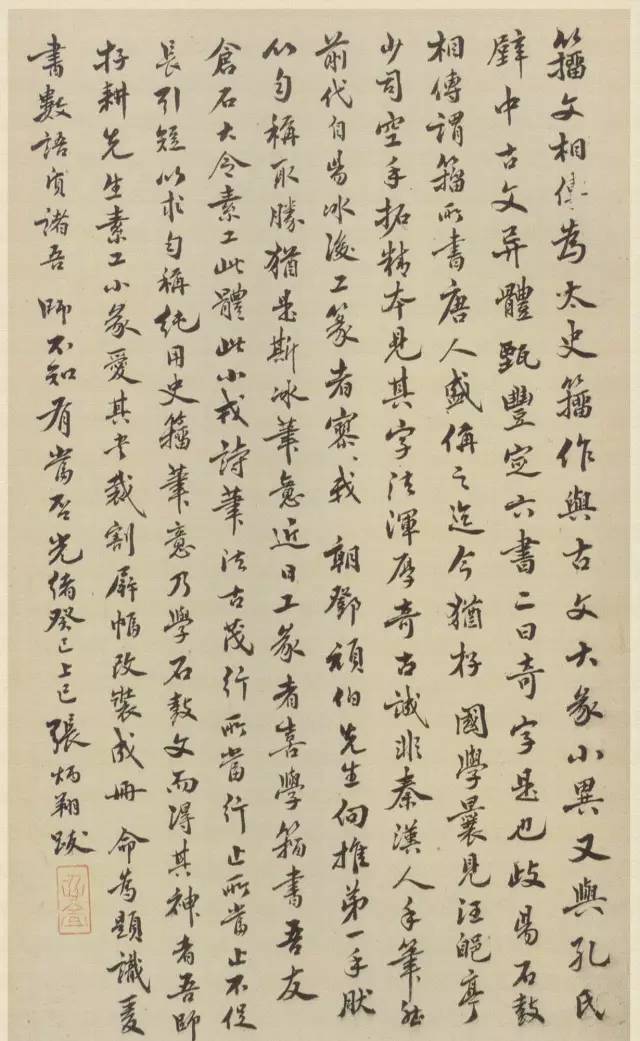 籀文相傳為太史籀作與古文大篆小異又與孔氏
壁中古文异體甄豐定六書二曰奇字是也歧陽石鼓
相傳謂籀所書唐人盛稱之迄今猶存國學曩見汪郋亭
少司空手拓精本見其字法渾厚奇古誠非秦漢人手筆然
前代自陽冰後工篆者寥寥我朝鄧頑伯先生向推第一手肰
以勻稱取勝猶是斯冰筆意近日工篆者喜學籀書吾友
倉石大令素工此體此小戎詩筆法古茂行所當行止所當止不促
長引短以求勻稱純用史籀筆意乃學石鼓文而得其神者吾師
存耕先生素工小篆愛其書裁割屏幅改裝成冊命為題識爰
書數語質諸吾師不知有當否光緒癸巳上巳張炳翔跋